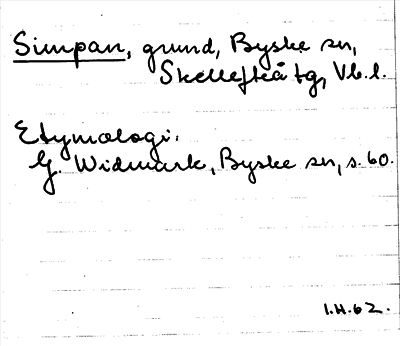 Simpan, grund, Byske sn,
Skellefteå tg, Vb. l.
Etymologi:
G. Widmark, Byske sn, s. 60.
I.H. 62.